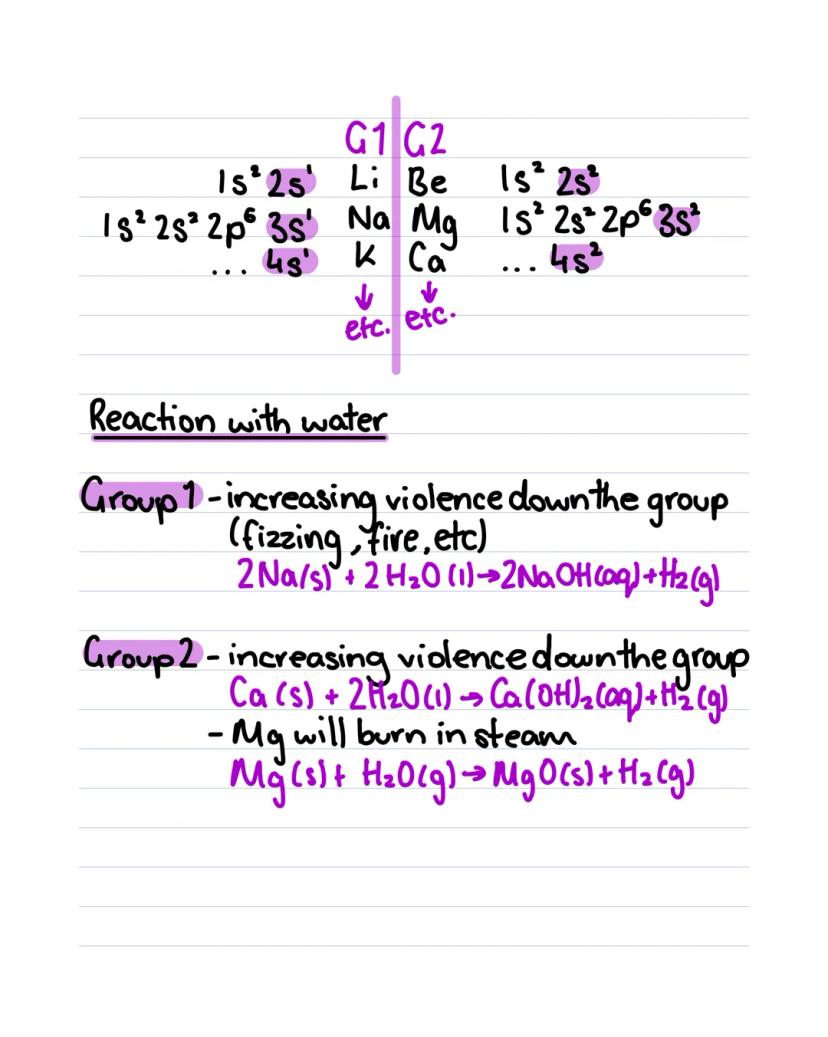 G1 G2
1s² 2s¹ Li Be 1s² 2s²
1s² 2s² 2p⁶ 3s¹ Na Mg 1s² 2s² 2p⁶ 3s²
... 4s¹ K Ca ... 4s²
↓ ↓
etc. etc.
Reaction with water
Group 1 - increasing violence down the group
(fizzing, fire, etc)
2Na(s) + 2H₂O(l) → 2NaOH(aq) + H₂(g)
Group 2 - increasing violence down the group
Ca(s) + 2H₂O(l) → Ca(OH)₂(aq) + H₂(g)
- Mg will burn in steam
Mg(s) + H₂O(g) → MgO(s) + H₂(g)